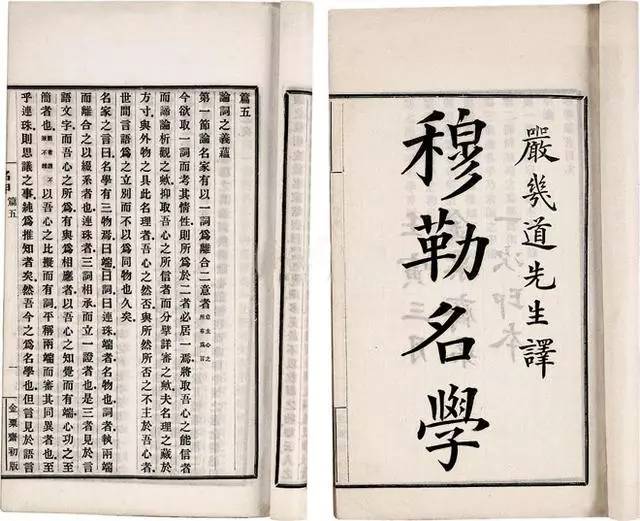 嚴幾道先生譯
穆勒名學
篇五
論詞之義蘊
第一節論名家有以一詞爲離合二意者
今欲取一詞而考其情性則所爲於二者必居一焉將取吾心之能信者
而諦論析觀之歟抑取吾心之所信者而分擘詳審之歟夫名理之藏於
方寸與外物之具此名理者吾心之然否與所然所否之不主於吾心者
世間言語爲之立別而不以爲同物也久矣
名家之言曰名學有三物焉曰端曰詞曰連珠端者名物也詞者執兩端
而離合之以綴系者也連珠者三詞相承而立一證者也是三者見於言
語文字而吾心之所爲有與爲相應者以吾心之知覺而有端心功之至
簡者也以吾心之比擬而有詞平稱兩端而審其同異者也至
乎連珠則思議之事純爲推知者矣然吾今之爲名學也但言見於語言
篇五
一
金粟齋初版